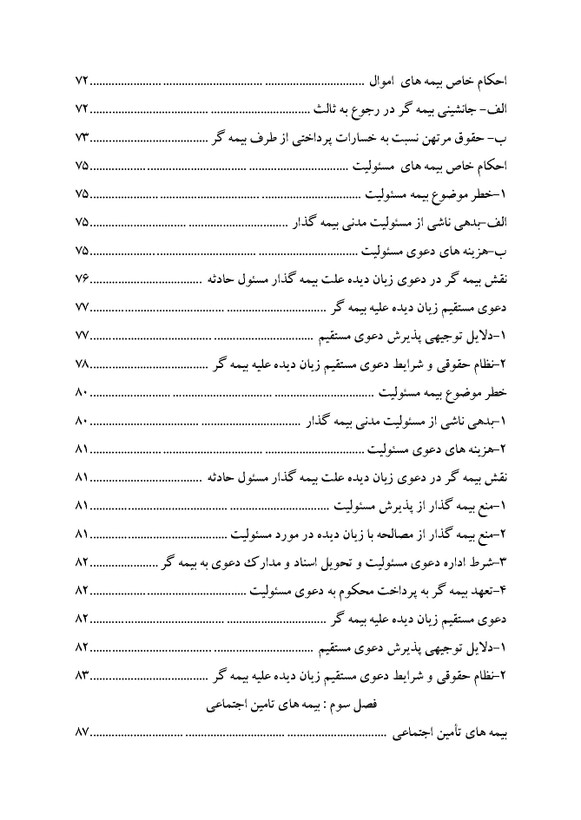 احکام خاص بیمه های اموال ........................................................................................ ۷۲
الف- جانشینی بیمه گر در رجوع به ثالث ..................................................................... ۷۲
ب- حقوق مرتهن نسبت به خسارات پرداختی از طرف بیمه گر ...................................... ۷۳
احکام خاص بیمه های مسئولیت .................................................................................. ۷۵
۱-خطر موضوع بیمه مسئولیت ...................................................................................... ۷۵
الف-بدهی ناشی از مسئولیت مدنی بیمه گذار .............................................................. ۷۵
ب-هزینه های دعوی مسئولیت ..................................................................................... ۷۵
نقش بیمه گر در دعوی زیان دیده علت بیمه گذار مسئول حادثه ................................... ۷۶
دعوی مستقیم زیان دیده علیه بیمه گر ......................................................................... ۷۷
۱-دلایل توجیهی پذیرش دعوی مستقیم ....................................................................... ۷۷
۲-نظام حقوقی و شرایط دعوی مستقیم زیان دیده علیه بیمه گر ...................................... ۷۸
خطر موضوع بیمه مسئولیت ......................................................................................... ۸۰
۱-بدهی ناشی از مسئولیت مدنی بیمه گذار ................................................................... ۸۰
۲-هزینه های دعوی مسئولیت ...................................................................................... ۸۱
نقش بیمه گر در دعوی زیان دیده علت بیمه گذار مسئول حادثه ................................... ۸۱
۱-منع بیمه گذار از پذیرش مسئولیت ........................................................................... ۸۱
۲-منع بیمه گذار از مصالحه با زیان دیده در مورد مسئولیت ............................................ ۸۱
۳-شرط اداره دعوی مسئولیت و تحویل اسناد و مدارک دعوی به بیمه گر ...................... ۸۲
۴-تعهد بیمه گر به پرداخت محکوم به دعوی مسئولیت .................................................. ۸۲
دعوی مستقیم زیان دیده علیه بیمه گر ......................................................................... ۸۲
۱-دلایل توجیهی پذیرش دعوی مستقیم ....................................................................... ۸۲
۲-نظام حقوقی و شرایط دعوی مستقیم زیان دیده علیه بیمه گر ...................................... ۸۳
فصل سوم : بیمه های تامین اجتماعی
بیمه های تأمین اجتماعی ............................................................................................. ۸۷